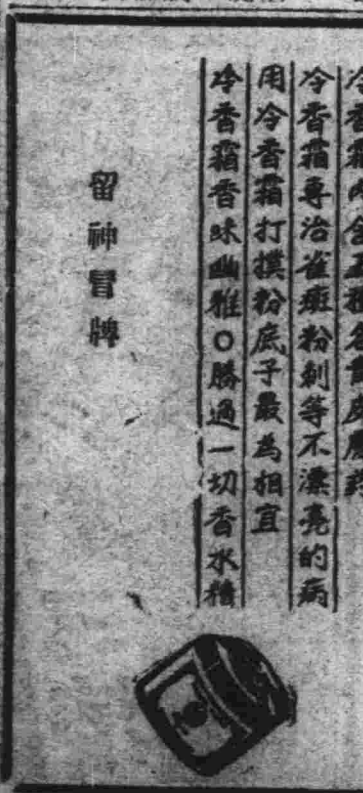 冷香霜內含五種名貴皮膚藥
冷香霜專治雀斑粉刺等不漂亮的病
用冷香霜打撲粉底子最為相宜
冷香霜香味幽雅○勝過一切香水精
留神冒牌